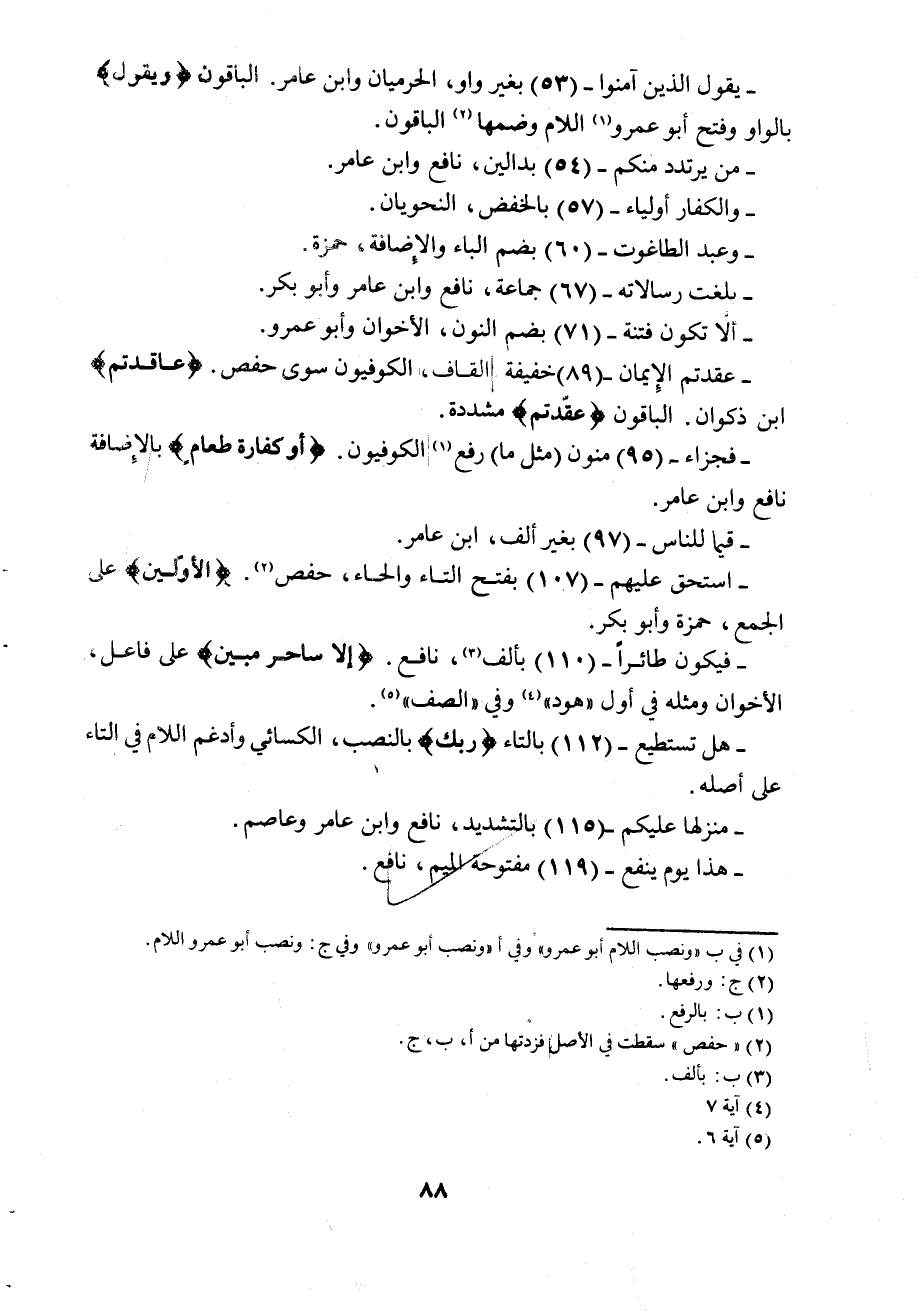 ـ يقول الذين آمنوا ـ (٥٣) بغير واو، الحرميان وابن عامر. الباقون ﴿ويقول﴾
بالواو وفتح أبو عمرو(١) اللام وضمها(٢) الباقون.
ـ من يرتدد منكم ـ (٥٤) بدالين، نافع وابن عامر.
ـ والكفار أولياء ـ (٥٧) بالخفض، النحويان.
ـ وعبد الطاغوت ـ (٦٠) بضم الباء والإضافة، حمزة.
ـ بلغت رسالاته ـ (٦٧) جماعة، نافع وابن عامر وأبو بكر.
ـ ألّا تكون فتنة ـ (٧١) بضم النون، الأخوان وأبو عمرو.
ـ عقدتم الإيمان ـ (٨٩) خفيفة القاف، الكوفيون سوى حفص. ﴿عاقدتم﴾
ابن ذكوان. الباقون ﴿عقّدتم﴾ مشددة.
ـ فجزاء ـ (٩٥) منون (مثل ما) رفع(١) الكوفيون. ﴿أو كفارة طعامٍ﴾ بالإضافة
نافع وابن عامر.
ـ قيما للناس ـ (٩٧) بغير ألف، ابن عامر.
ـ استحق عليهم ـ (١٠٧) بفتح التاء والحاء، حفص(٢). ﴿الأوّلين﴾ على
الجمع، حمزة وأبو بكر.
ـ فيكون طائراً ـ (١١٠) بألف(٣)، نافع. ﴿إلا ساحر مبين﴾ على فاعل،
الأخوان ومثله في أول «هود»(٤) وفي «الصف»(٥).
ـ هل تستطيع ـ (١١٢) بالتاء ﴿ربك﴾ بالنصب، الكسائي وأدغم اللام في التاء
على أصله.
ـ منزلها عليكم ـ (١١٥) بالتشديد، نافع وابن عامر وعاصم.
ـ هذا يوم ينفع ـ (١١٩) مفتوحة الميم، نافع.
(١) في ب «ونصب اللام أبو عمرو» وفي أ «ونصب أبو عمرو» وفي ج: ونصب أبو عمرو اللام.
(٢) ج: ورفعها.
(١) ب: بالرفع.
(٢) «حفص» سقطت في الأصل فزدتها من أ، ب، ج.
(٣) ب: بألف.
(٤) آية ٧
(٥) آية ٦.
٨٨